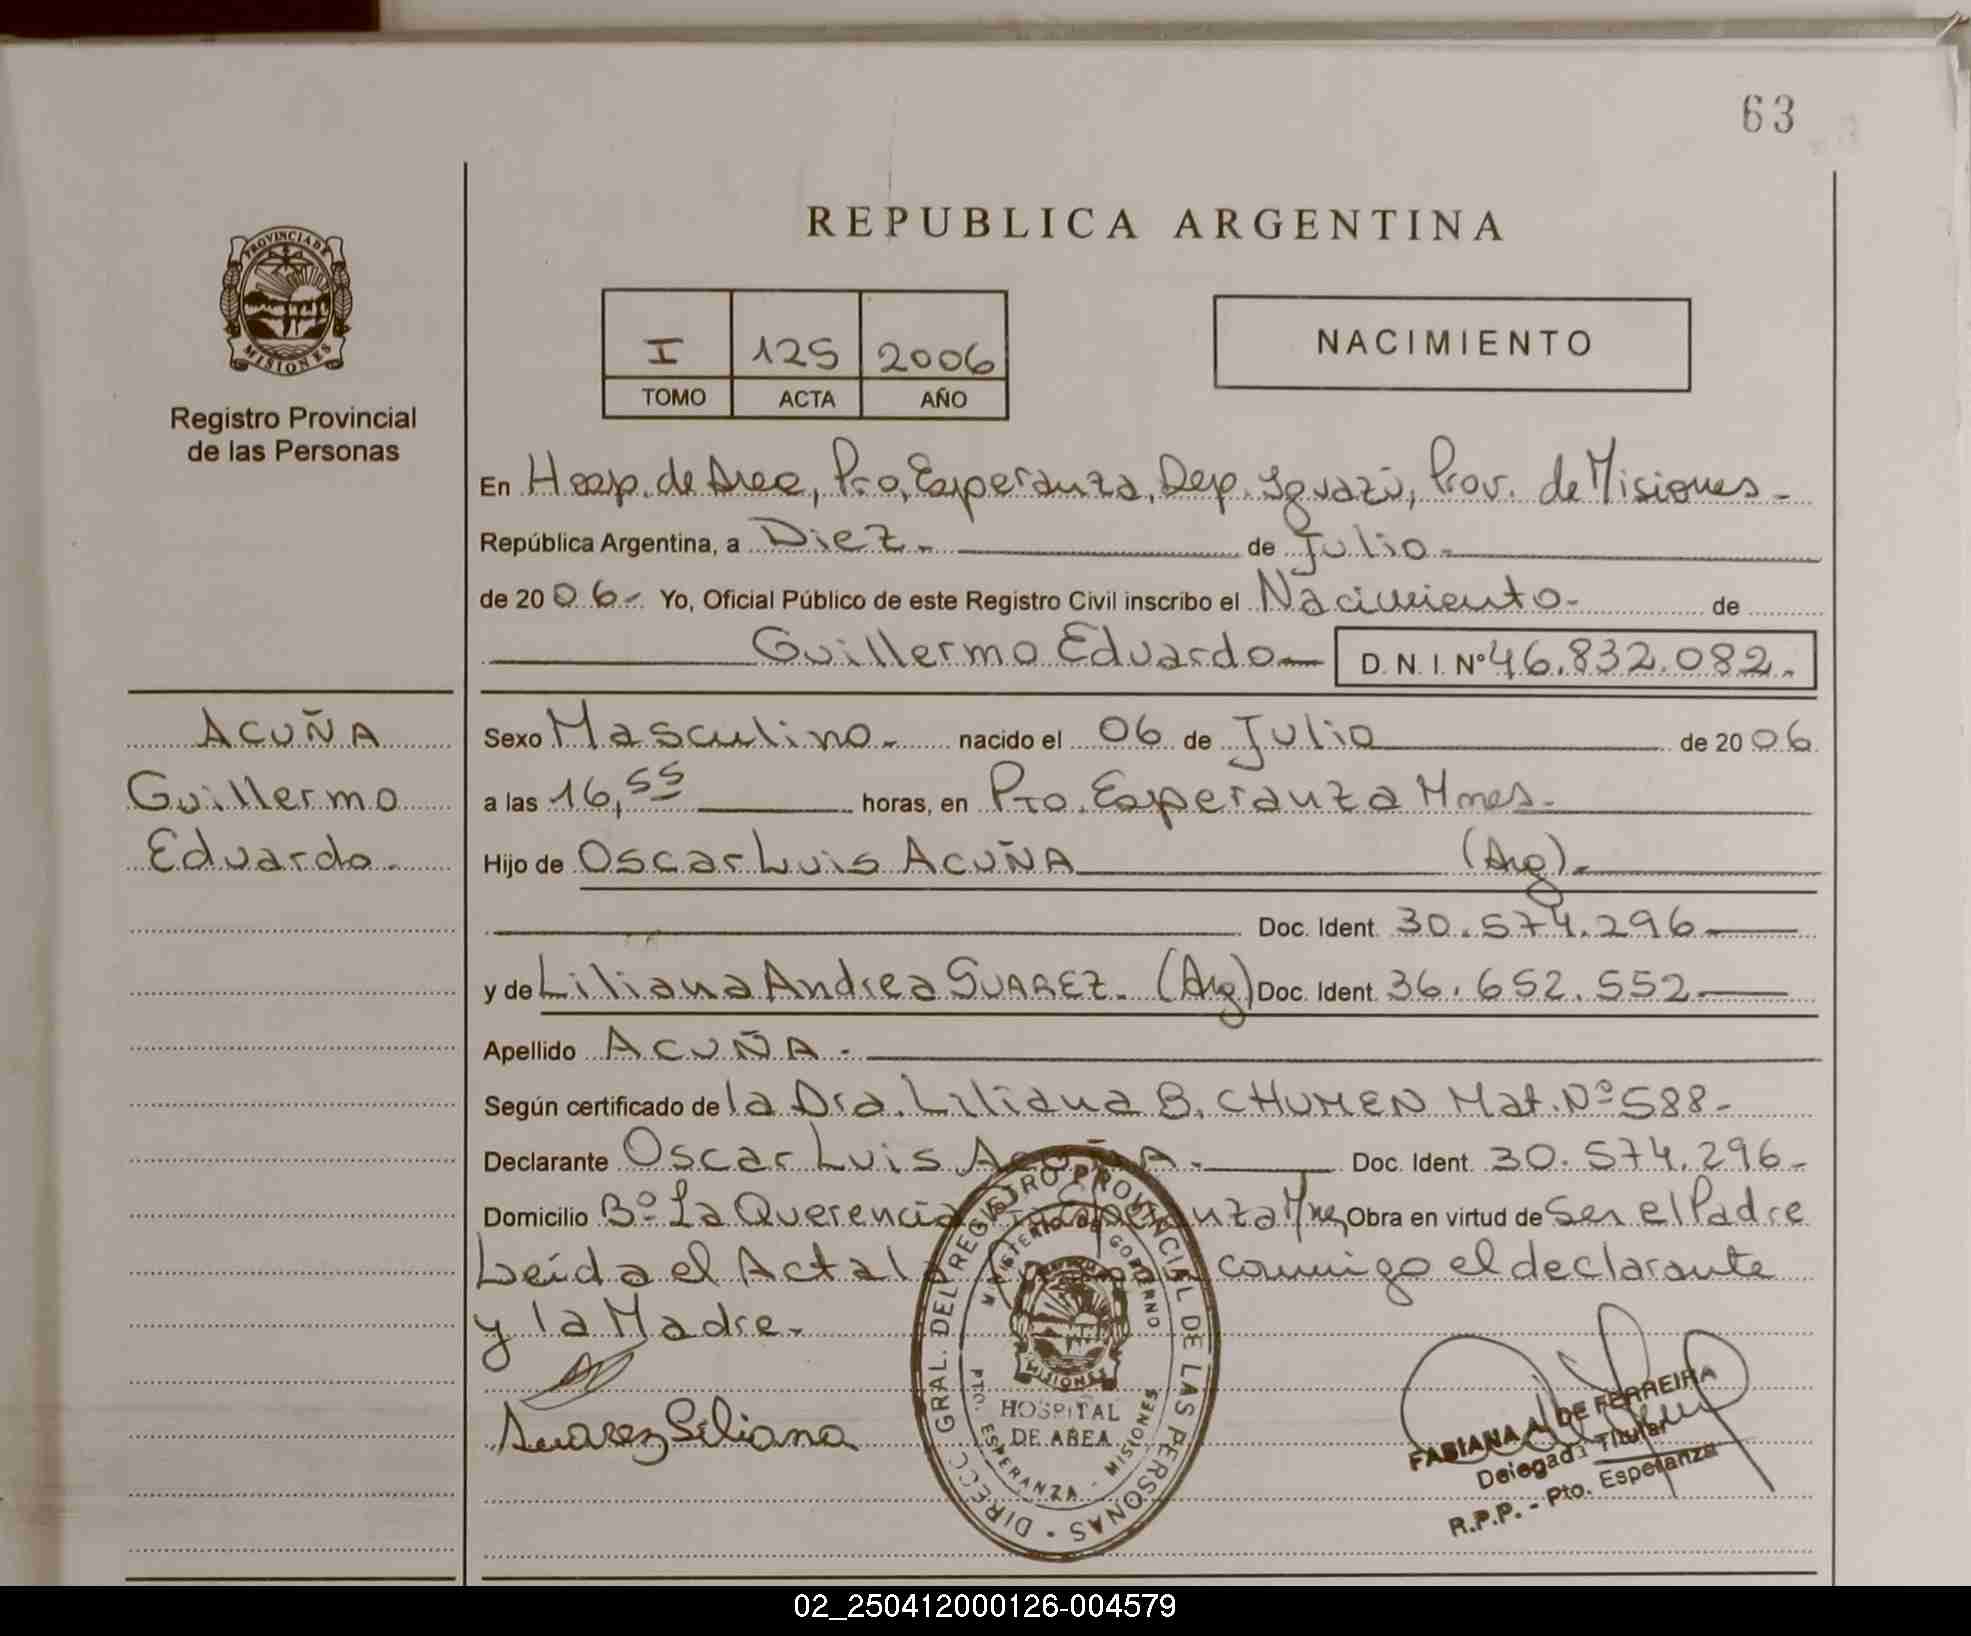 63
REPUBLICA ARGENTINA
PROVINCIA DE
MISIONES
Registro Provincial
de las Personas
I 125 2006
TOMO ACTA AÑO
NACIMIENTO
En Hosp. de Area, Pto, Esperanza, Dep. Iguazú, Prov. de Misiones -
República Argentina, a Diez - de Julio -
de 2006 - Yo, Oficial Público de este Registro Civil inscribo el Nacimiento - de
Guillermo Eduardo — D. N. I. Nº 46.832.082.
ACUÑA
Guillermo
Eduardo -
Sexo Masculino - nacido el 06 de Julio de 2006
a las 16,55 horas, en Pto. Esperanza Mnes -
Hijo de Oscar Luis ACUÑA (Arg) -
Doc. Ident. 30.574.296
y de Liliana Andrea SUAREZ - (Arg) Doc. Ident. 36.652.552
Apellido ACUÑA -
Según certificado de la Dra. Liliana B. CHUMEN Mat. Nº 588 -
Declarante Oscar Luis ACUÑA - Doc. Ident. 30.574.296 -
Domicilio Bº La Querencia Mnes, Obra en virtud de Ser el Padre
Leída el Acta conmigo el declarante
y la Madre -
Suarez Liliana
DIRECC. GRAL. DEL REGISTRO PROVINCIAL DE LAS PERSONAS
MINISTERIO DE GOBIERNO
MISIONES
HOSPITAL
DE AREA
PTO. ESPERANZA - MISIONES
FABIANA A. DE FERREIRA
Delegada Titular
R.P.P. - Pto. Esperanza
02_250412000126-004579